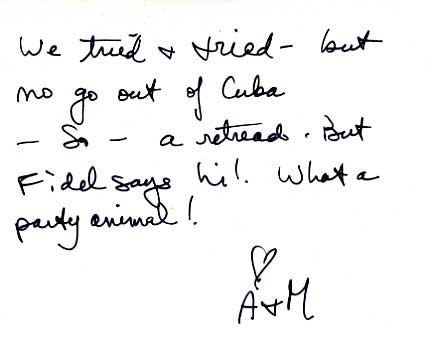 We tried & tried - but
no go out of Cuba
- So - a retread. But
Fidel says hi! What a
party animal!
♡
A & M